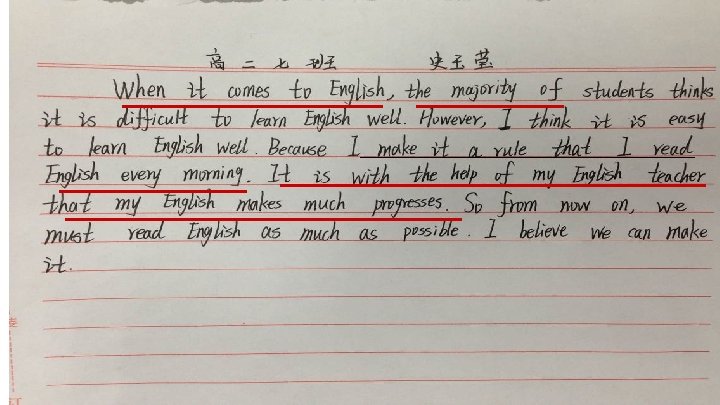 高二七班 史玉莹
When it comes to English, the majority of students thinks
it is difficult to learn English well. However, I think it is easy
to learn English well. Because I make it a rule that I read
English every morning. It is with the help of my English teacher
that my English makes much progresses. So from now on, we
must read English as much as possible. I believe we can make
it.